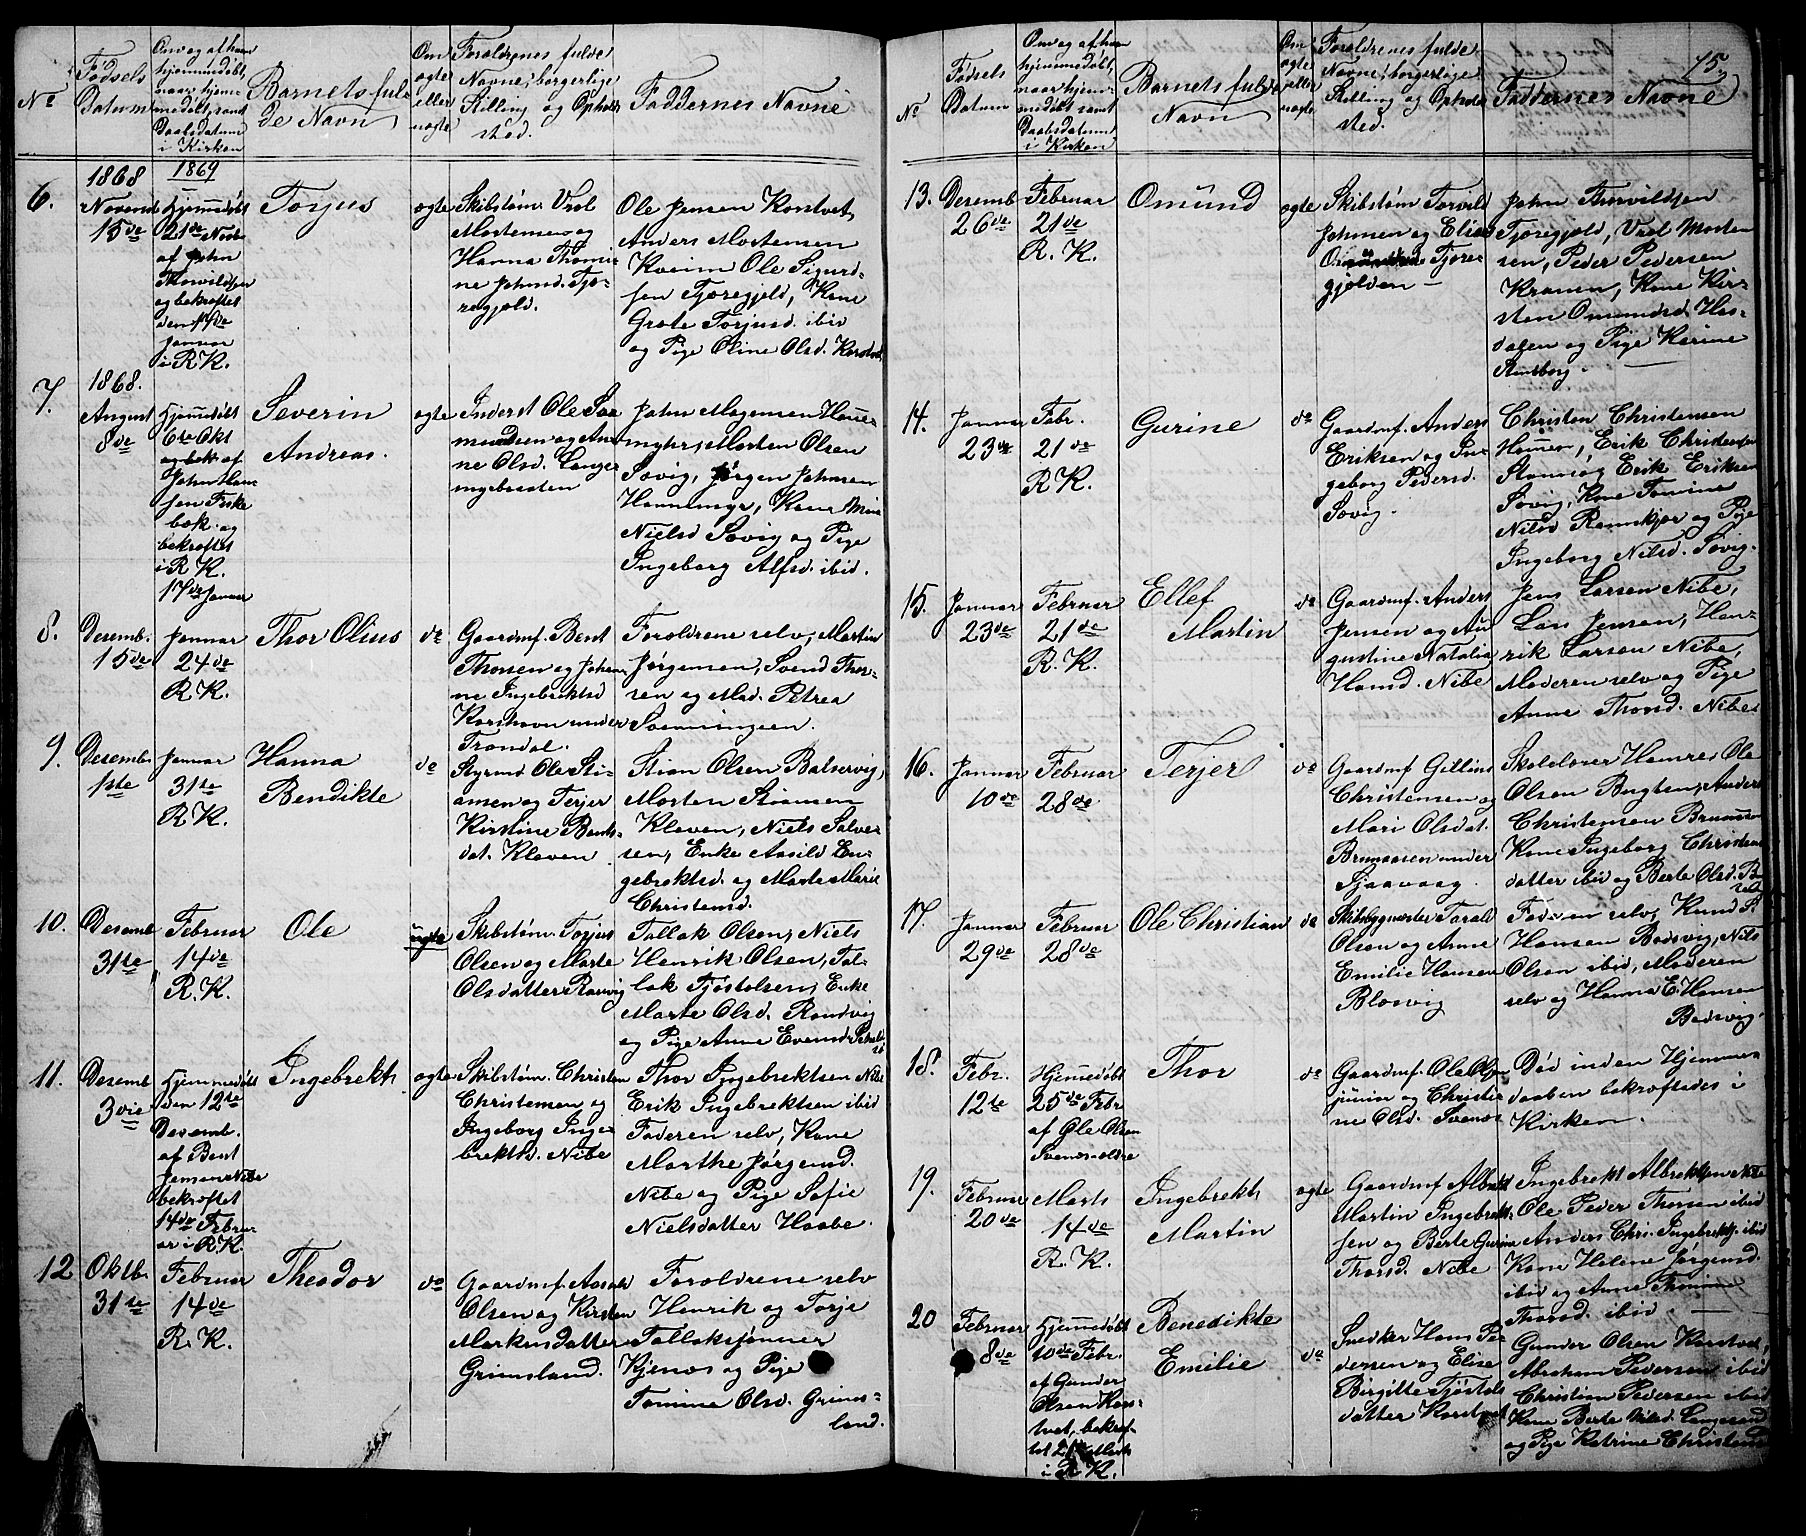 No
Fødsels
Datum
Om og af hvem
hjemmedøbt,
naar hjem-
medøbt samt
Daabsdatum
i Kirken
Barnets ful-
de Navn
Om
ægte
eller
uægte
Forældrenes fulde
Navne, borgerlige
Stilling og Opholds
sted.
Faddernes Navne
6.
1868
Novemb
15de
1869
Hjemmedøbt
21de Novbr
af John
Thorvildsen
og bekræftet
den 17de
Januar
i R K.
Torjus
ægte
Skibstøm. Vrol
Mortensen og
Hanna Thomi-
ne Johnsd. Tjø-
regjold.
Ole Jensen Korstvet,
Anders Mortensen
Kveim Ole Sigurd-
sen Tjøregjeld, Kone
Grete Torjusd. ibid
og Pige Oline Olsd. Korstvet
7.
1868.
August
8de
Hjemmedøbt
6te Okt
og bek af
John Han
sen Fiske
bæk og
bekræftet
i R K.
17de Januar
Severin
Andreas.
ægte
Inderst Ole Saa
mundsen og An
ne Olsd. Langer
mgebraaten
John Mogensen Houe-
myhr, Morten Olsen
Søvig, Jørgen Johnsen
Hounemyr, Kone Mina
Nielsd Søvig og Pige
Ingeborg Alfsd. ibid.
8.
Desemb.
15de
Januar
24de
R K.
Thor Olius
do
Gaardmf. Bent
Thorsen og Johan
ne Ingebrektsd
Korshavn under
Trondal.
Forældrene selv, Martin
Jørgensen, Svend Thor-
sen og Mad. Petrea
Svenningsen.
9.
Desemb.
1ste
Januar
31te
R K.
Hanna
Bendikte
do
Styrmd Ole Sti-
ansen og Terjer
Kirstine Bents-
dat. Kleven
Stian Olsen Balservig,
Morten Stiansen
Kleven, Niels Salve-
sen, Enke Aasild En-
gebrektsd. og Marte Marie
Christensd.
10.
Desemb
31te
Februar
14de
R. K.
Ole
uægte
Skibstøm. Torjus
Olsen og Marte
Olsdatter Rønvig
Tallak Olsen, Niels
Henrik Olsen, Tal-
lak Tjøstolsen, Enke
Marte Olsd. Røndvig
og Pige Anne Evensd
11.
Desemb
3die
Hjemmedøbt
den 12te
Desemb.
af Bent
Jensen Nibe
bekræftet
14de Febru-
ar i R. K.
Ingebrekt
ægte
Skibstøm. Christen
Christensen og
Ingeborg Inge
brektsd. Nibe
Thor Ingebrektsen Nibe
Erik Ingebrektsen ibid
Faderen selv, Kone
Marthe Jørgensd.
Nibe og Pige Sofie
Nielsdatter Haabe.
12
Oktb.
31te
Februar
14de
R. K.
Theodor
do
Gaardmf.
Olsen og Kirsten
Markusdatter
Grimsland.
Forældrene selv
Henrik og Torje
Tallaksønner
Kjenos og Pige
Tomine Olsd. Grims-
land.
75.
No
Fødsels
Datum
Om og af hvem
hjemmedøbt,
naar hjem-
medøbt samt
Daabsdatum
i Kirken
Barnets fulde
Navn
Om
ægte
eller
uægte
Forældrenes fulde
Navne, borgerlige
Stilling og Opholds
sted.
Faddernes Navne
13.
Desemb
26de
Februar
21de
R. K.
Omund
ægte
Skibstøm Torvild
Johnsen og Elise
Tjøre-
gjolden —
John Thorvildsen
Tjøregjold, Vrol Morten
sen, Peder Pedersen
Kranen, Kone Kir-
sten Omundsd Høs-
dalen og Pige Karine

14.
Januar
23de
Febr.
21de
R K.
Gurine
do
Gaardmf. Anders
Eriksen og In-
geborg Pedersd.
Søvig.
Christen Christensen
Erik Christensen
Erik Eriksen
Søvig, Kone Tomine
Nilsd Rønnkjær og Pige
Ingeborg Nilsd. Søvig.
15.
Januar
23de
Februar
21de
R. K.
Ellef
Martin
do
Gaardmf. Anders
Jensen og Au
gustine Natalia
Hansd. Nibe
Jens Larsen Nibe,
Lars Jensen, Hen-
rik Larsen Nibe,
Moderen selv og Pige
Anne Thorsd. Nibe
16.
Januar
10de
Februar
28de
Terjer
do
Gaardmf Gellius
Christensen og
Mari Olsdat.
Brunaasen under
Sjaavaag.
Skolelærer Hamre, Ole
Olsen Bugten, Anders
Christensen Brunaasen
Kone Ingeborg Christens
datter ibid og Berte Olsd.
17.
Januar
29de
Februar
28de
Ole Christian
do
Skibsbygmester Torall
Olsen og Anne
Emilie Hansen
Blosvig
Faderen selv, Knud
Hansen Bodsvig, Nils
Olsen ibid, Moderen
selv og Hanna E. Hansen
Bodsvig.
18.
Febr.
12te
Hjemmedøbt
25de Febr
af Ole Olsen
Svenes-ældre
Thor
do
Gaardmf. Ole Olsen
junior og Christi
ne Olsd. Svenes
Død inden Hjemme
daaben bekræftedes i
Kirken.
19.
Februar
20de
Marts
14de
R. K.
Ingebrekt
Martin
ægte
Gaardmf Albrekt
Martin Ingebrekt-
sen og Berte Gurine
Thorsd. Nibe
Ingebrekt Albrektsen Nibe
Ole Peder Thorsen ibid
Anders Chr. Ingebrektsen ibid
Kone Helene Jørgensd.
ibid og Anne Thomine
Thorsd. ibid —
20
Februar
8de
Hjemmedøbt
10de Febr.
af Gunder
Olsen Kors-
tvet, bekræf-
tet 21de Marts
i R K.
Benedikte
Emilie
do
Snedker Hans Pe
dersen og Elise
Birgitte Tjøstols
datter Korstvet
Gunder Olsen Korstvet,
Abraham Pedersen ibid
Christian Pedersen ibid
Kone Berte Nilsd. Langesand
og Pige Katrine Christensd